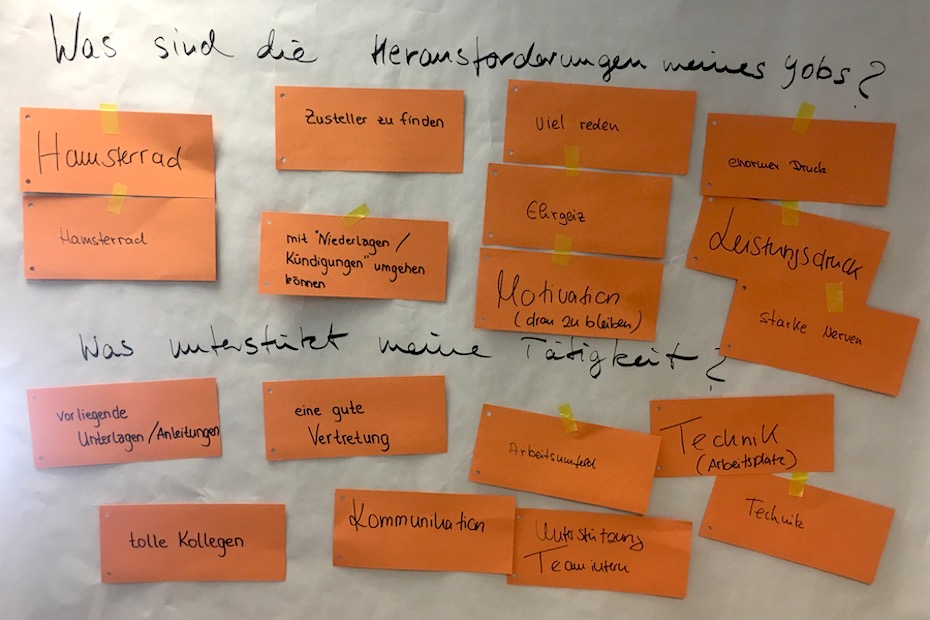 Was sind die Herausforderungen meines Jobs?
Hamsterrad
Hamsterrad
Zusteller zu finden
mit "Niederlagen /
Kündigungen" umgehen
können
viel reden
Ehrgeiz
Motivation
(dran zu bleiben)
enormer Druck
Leistungsdruck
starke Nerven
Was unterstützt meine Tätigkeit?
vorliegende
Unterlagen/Anleitungen
eine gute
Vertretung
Arbeitsumfeld
Technik
(Arbeitsplatz)
Technik
tolle Kollegen
Kommunikation
Unterstützung
Teamintern